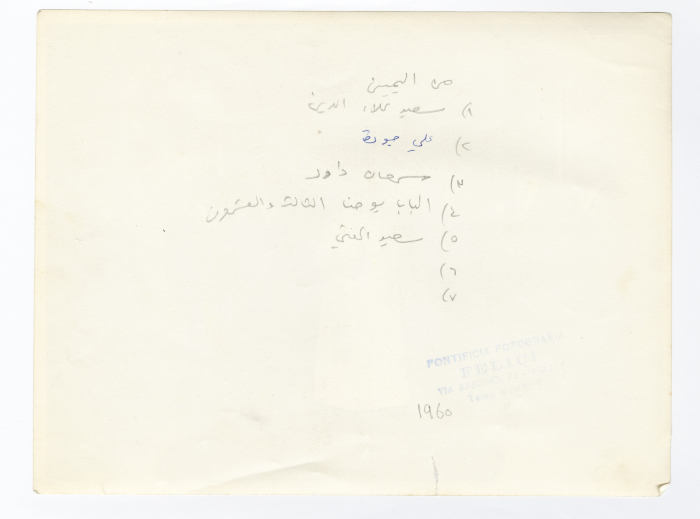 من اليمين
١) سعيد علاء الدين
٢) علي
٣) سرحان داود
٤) البابا يوحنا الثالث والعشرون
٥) سعيد المفتي
٦)
٧)
PONTIFICIA FOTOGRAFIA
FELICI
VIA
1960